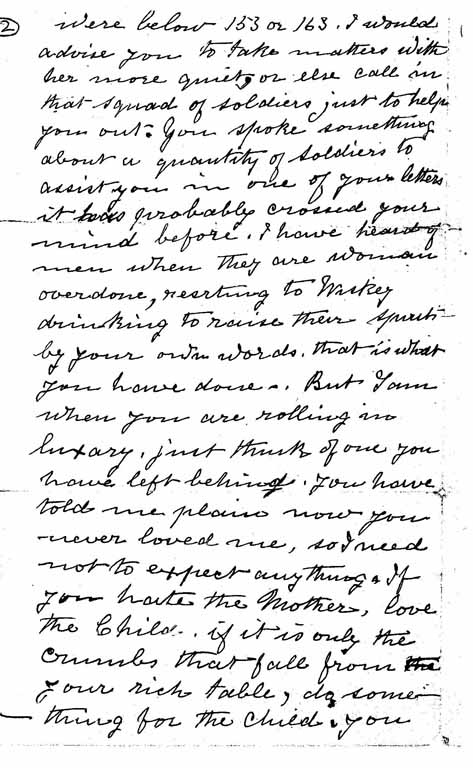 2
were below 153 or 163. I would
advise you to take matters with
her more quiet, or else call in
that squad of soldiers just to help
you out. You spoke something
about a quantity of soldiers to
assist you in one of your letters
it has probably crossed your
mind before. I have heard of
men when they are woman
overdone, resrting to Wiskey
drinking to raise their spirits
by your own words. that is what
you have done. But Tam
when you are rolling in
luxary, just think of one you
have left behind. you have
told me plain now you
never loved me, so I need
not to expect anything. If
you hate the Mother, love
the Child. if it is only the
crumbs that fall from the
your rich table, do some
thing for the child. you